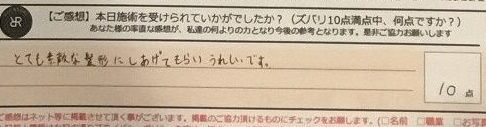 【ご感想】本日施術を受けられていかがでしたか？（ズバリ10点満点中、何点ですか？）
あなた様の率直な感想が、私達の何よりの力となり今後の参考となります。是非ご協力お願いします
とても素敵な髪形にしあげてもらいうれしいです。
10点
ご感想はネット等に掲載させて頂く事がございます。掲載のご協力頂けるものにチェックをお願します。（□名前 □職業 □お写真